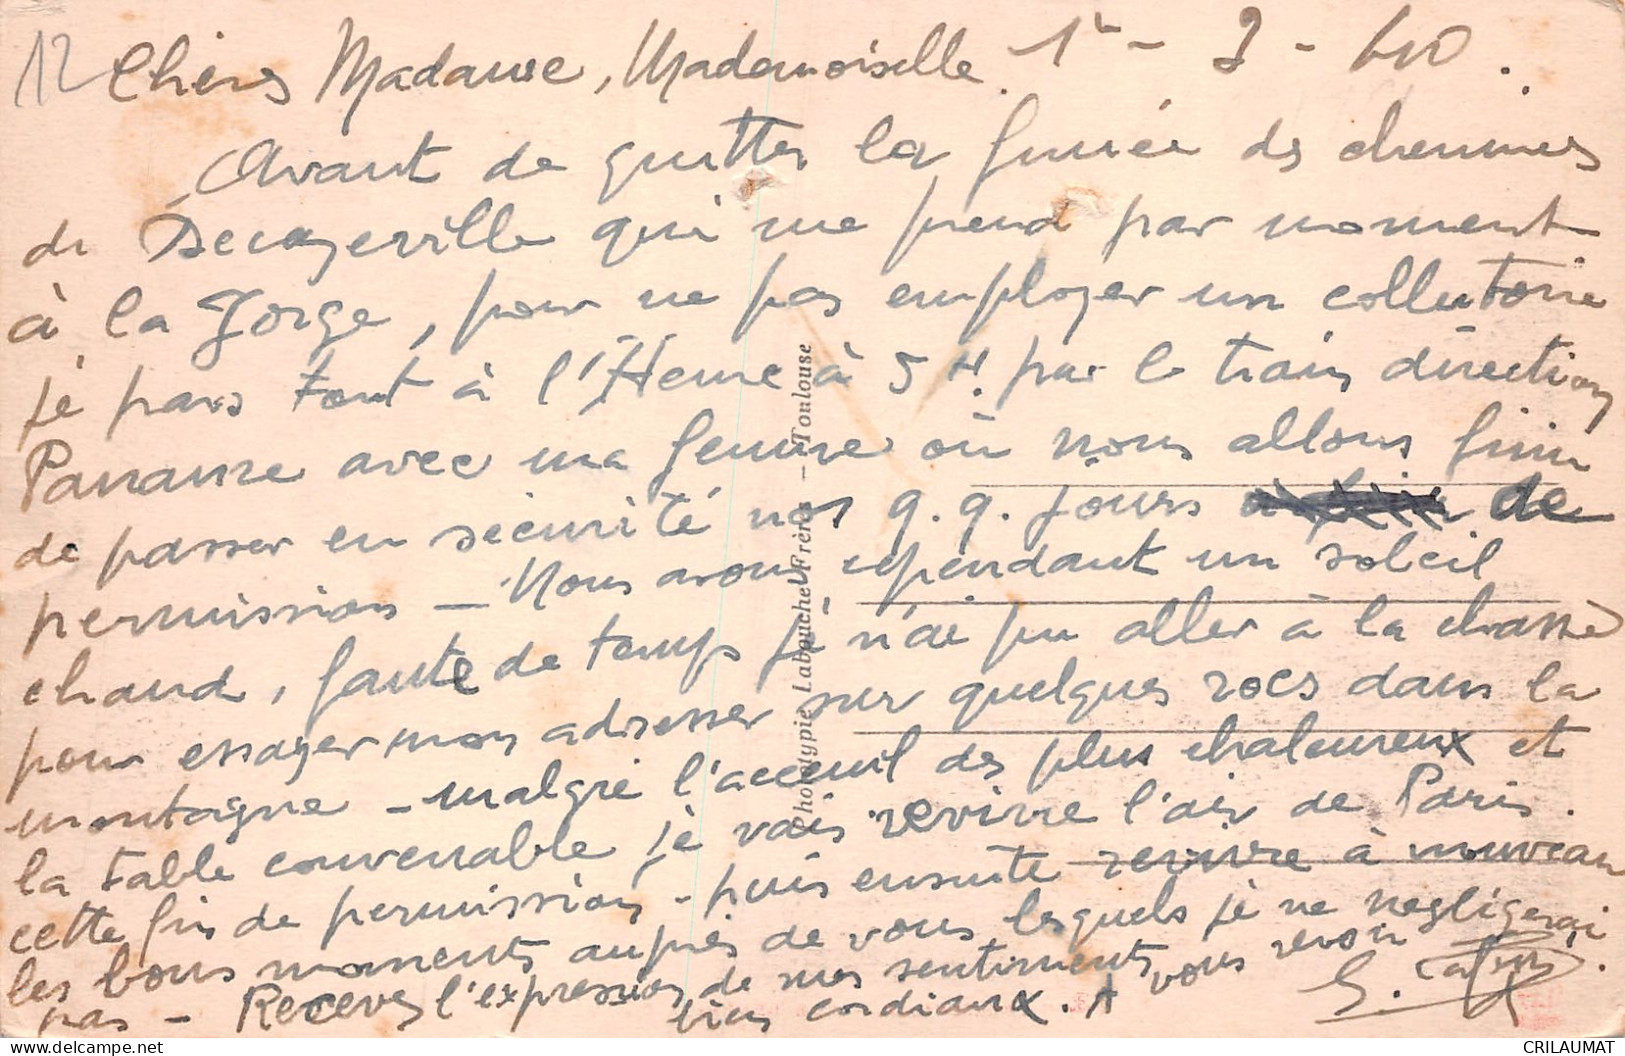 12 Chères Madame, Mademoiselle. 1r - 3 - 40.
Avant de quitter la fumée des cheminées
de Decazeville qui me prend par moment
à la Gorge, pour ne pas employer un collutoire
je pars tout à l'Heure à 5 H. par le train direction
avec ma femme où nous allons finir
de passer en sécurité nos q.q. jours de
permission - Nous avons cependant un soleil
chaud, faute de temps je n'ai pu aller à la chasse
pour essayer mon adresse sur quelques rocs dans la
montagne - malgré l'acceuil des plus chaleureux et
la table convenable je vais revivre l'air de Paris.
cette fin de permission - puis ensuite revivre à nouveau
les bons moments auprès de vous lesquels je ne négligerai
pas - Recevez l'expression de mes sentiments
bien cordiaux. A vous revoir
Phototypie Labouche Frères - Toulouse
CRILAUMAT